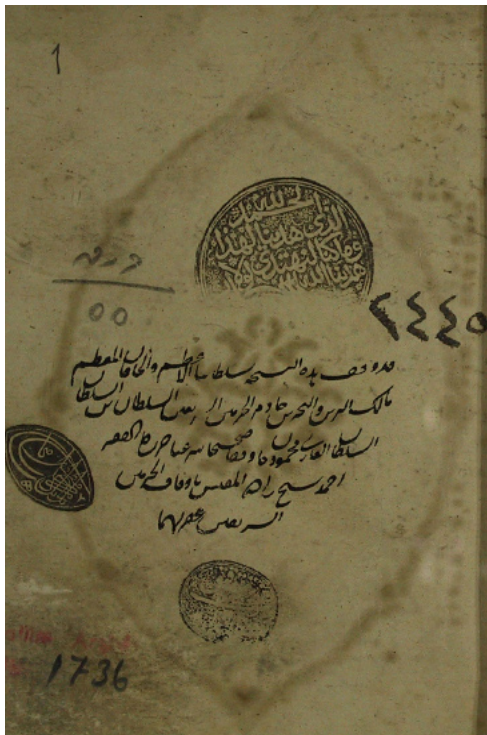 ١
الحمد لله
الذى هدينا لهذا
وما كنا لنهتدى لولا
ان هدينا الله
ورق
٥٥
٢٤٤٥
قد وقف هذه النسخة سلطاننا الاعظم والخاقان المعظم
مالك البرين والبحرين خادم الحرمين الشريفين السلطان بن السلطان
السلطان الغازى محمود خان وقفا صحيحا شرعيا حرره الفقير
احمد شيخ زاده المفتش باوقاف الحرمين
الشريفين غفر لهما
1736